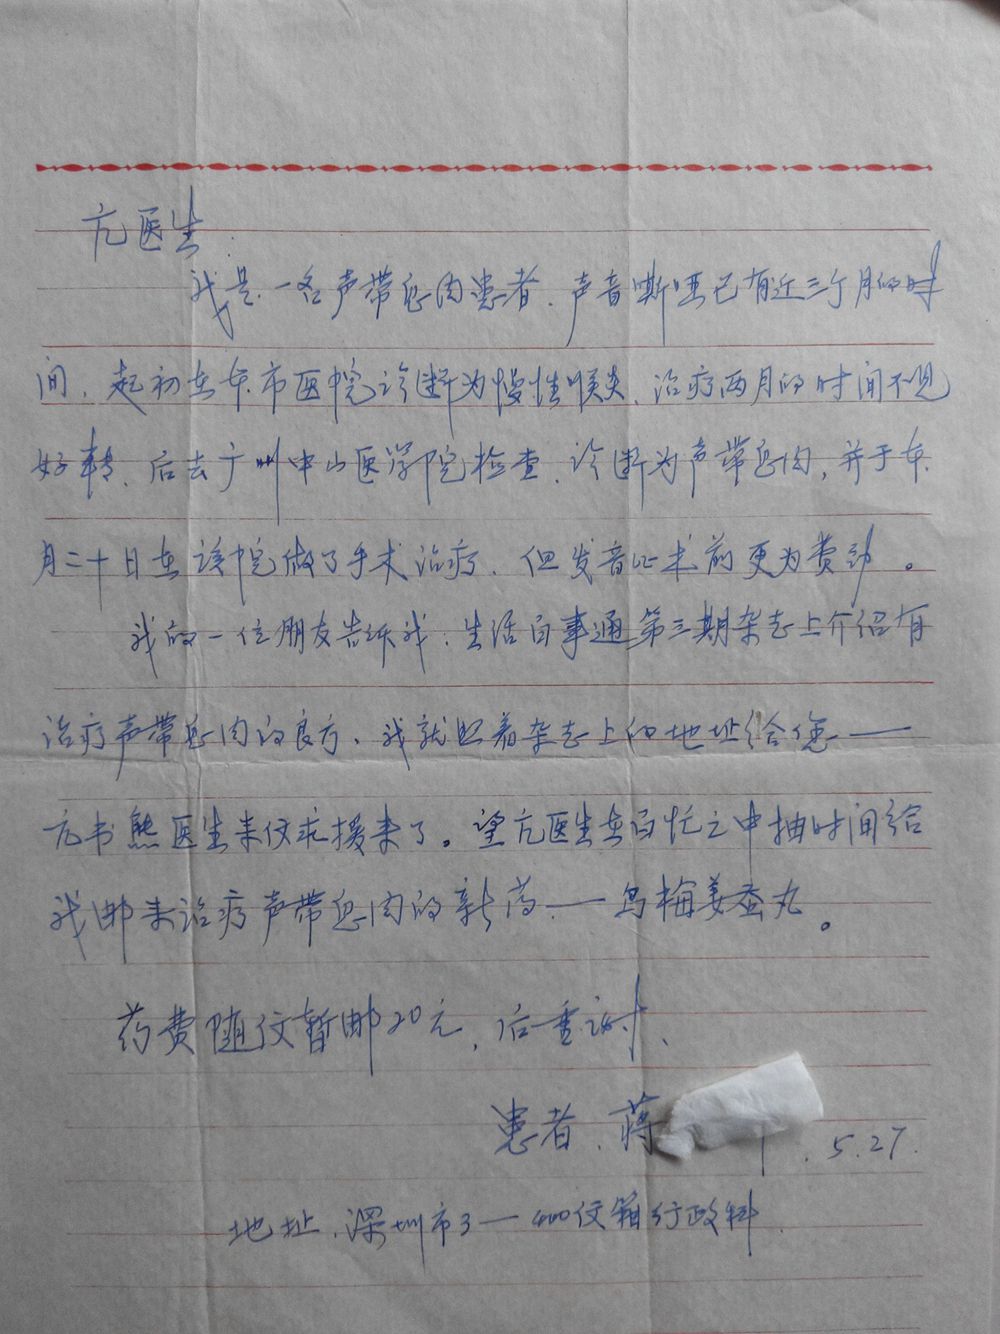 亢医生:
我是一名声带息肉患者.声音嘶哑已有近三个月的时
间.起初在本市医院诊断为慢性喉炎.治疗两月的时间不见
好转.后去广州中山医学院检查.诊断为声带息肉,并于本
月二十日在该院做了手术治疗.但发音比术前更为费劲。
我的一位朋友告诉我:生活百事通第三期杂志上介绍有
治疗声带息肉的良方.我就照着杂志上的地址给您——
亢书熊医生来信求援来了。望亢医生在百忙之中抽时间给
我邮来治疗声带息肉的新药.——乌梅姜蚕丸。
药费随信暂邮20元,后重谢.
患者.蒋 .5.27.
地址.深圳市3—400信箱行政科.